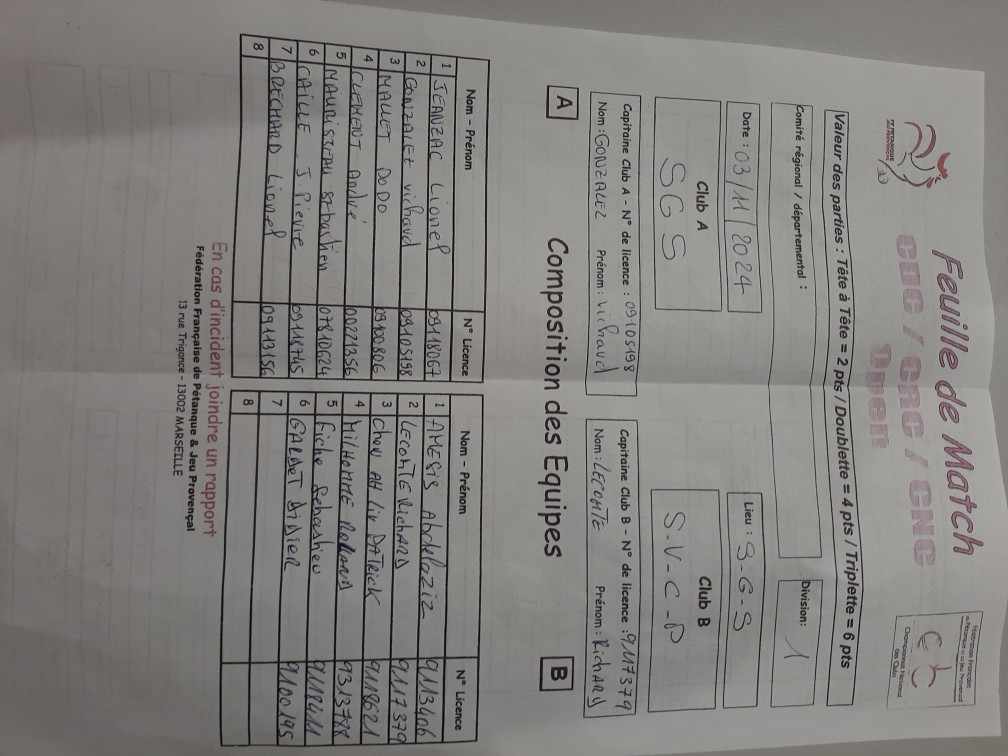 Feuille de Match
CDC / CRC / CNC
Open
FF PÉTANQUE
Fédération Française
de Pétanque et de Jeu Provençal
Championnat National
des Clubs
Valeur des parties : Tête à Tête = 2 pts / Doublette = 4 pts / Triplette = 6 pts
Comité régional / départemental :
Division: 1
Date : 03/11/2024
Lieu : S-G-S
Club A
SGS
Club B
S-V-C-P
Capitaine Club A - N° de licence : 09105198
Nom : GONZALEZ Prénom : Richard
Capitaine Club B - N° de licence : 9117379
Nom : LECOMTE Prénom : RicHARD
A Composition des Equipes B
Nom - Prénom N° Licence
1 JEANZAC Lionel 09118067
2 GONZALEZ Richard 09105198
3 MALLET DODO 09100806
4 CLEMENT André 00221356
5 MAURISSEAU Sebastien 07810624
6 CAILLE J. Pierre 09118745
7 BRECHARD Lionel 09113156
8
Nom - Prénom N° Licence
1 AMESS Abdelaziz 9113406
2 LECOMTE RicHARD 9117379
3 CHEN AH LIN PATRICK 9118621
4 MILHOMME ROLAND 9313788
5 Fiche Sebastien 9118411
6 GARDET DIDIER 9100195
7
8
En cas d'incident joindre un rapport
Fédération Française de Pétanque & Jeu Provençal
13 rue Trigance - 13002 MARSEILLE